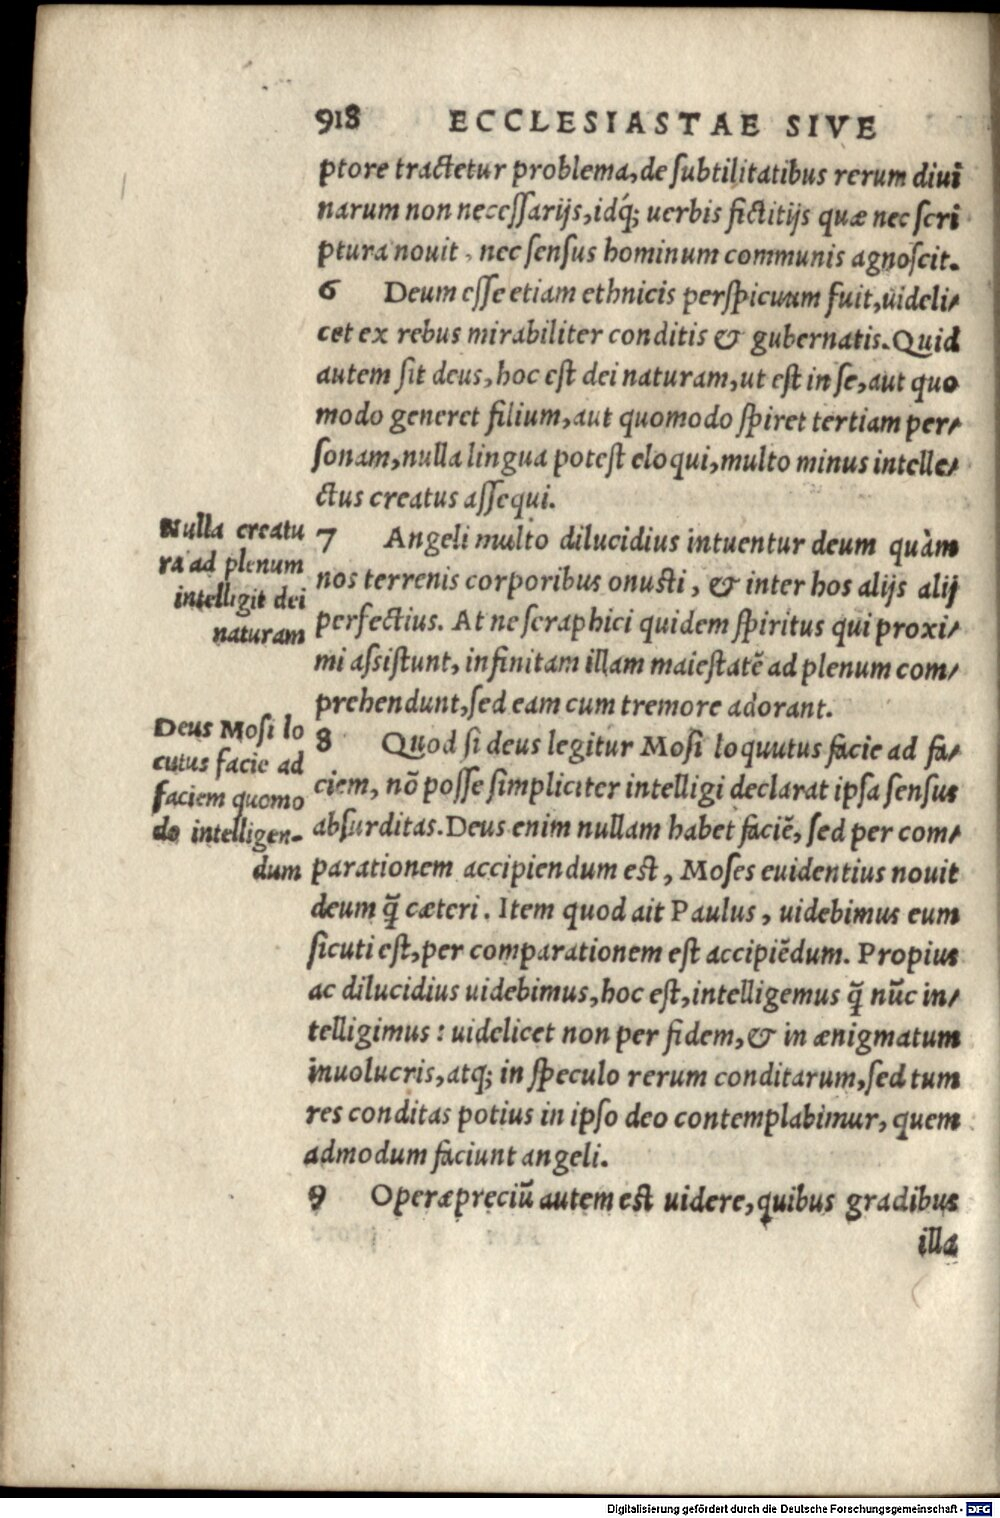 918 ECCLESIASTAE SIVE
ptore tractetur problema, de ſubtilitatibus rerum diui
narum non neceſſarijs, idq́; uerbis fictitijs quæ nec ſcri
ptura nouit, nec ſenſus hominum communis agnoſcit.
6 Deum eſſe etiam ethnicis perſpicuum fuit, uideli/
cet ex rebus mirabiliter conditis & gubernatis. Quid
autem ſit deus, hoc eſt dei naturam, ut eſt in ſe, aut quo
modo generet filium, aut quomodo ſpiret tertiam per/
ſonam, nulla lingua poteſt eloqui, multo minus intelle/
ctus creatus aſſequi.
Nulla creatu
ra ad plenum
intelligit dei
naturam
7 Angeli multo dilucidius intuentur deum quàm
nos terrenis corporibus onuſti, & inter hos alijs alij
perfectius. At ne ſeraphici quidem ſpiritus qui proxi/
mi aſsiſtunt, infinitam illam maieſtatẽ ad plenum com/
prehendunt, ſed eam cum tremore adorant.
Deus Moſi lo
cutus facie ad
faciem quomo
do intelligen-
dum
8 Quod ſi deus legitur Moſi loquutus facie ad fa/
ciem, nõ poſſe ſimpliciter intelligi declarat ipſa ſenſus
abſurditas. Deus enim nullam habet faciẽ, ſed per com/
parationem accipiendum eſt, Moſes euidentius nouit
deum q̃ cæteri. Item quod ait Paulus, uidebimus eum
ſicuti eſt, per comparationem eſt accipiẽdum. Propius
ac dilucidius uidebimus, hoc eſt, intelligemus q̃ nũc in/
telligimus: uidelicet non per fidem, & in ænigmatum
inuolucris, atq; in ſpeculo rerum conditarum, ſed tum
res conditas potius in ipſo deo contemplabimur, quem
admodum faciunt angeli.
9 Operæpreciũ autem eſt uidere, quibus gradibus
illa
Digitalisierung gefördert durch die Deutsche Forschungsgemeinschaft - DFG